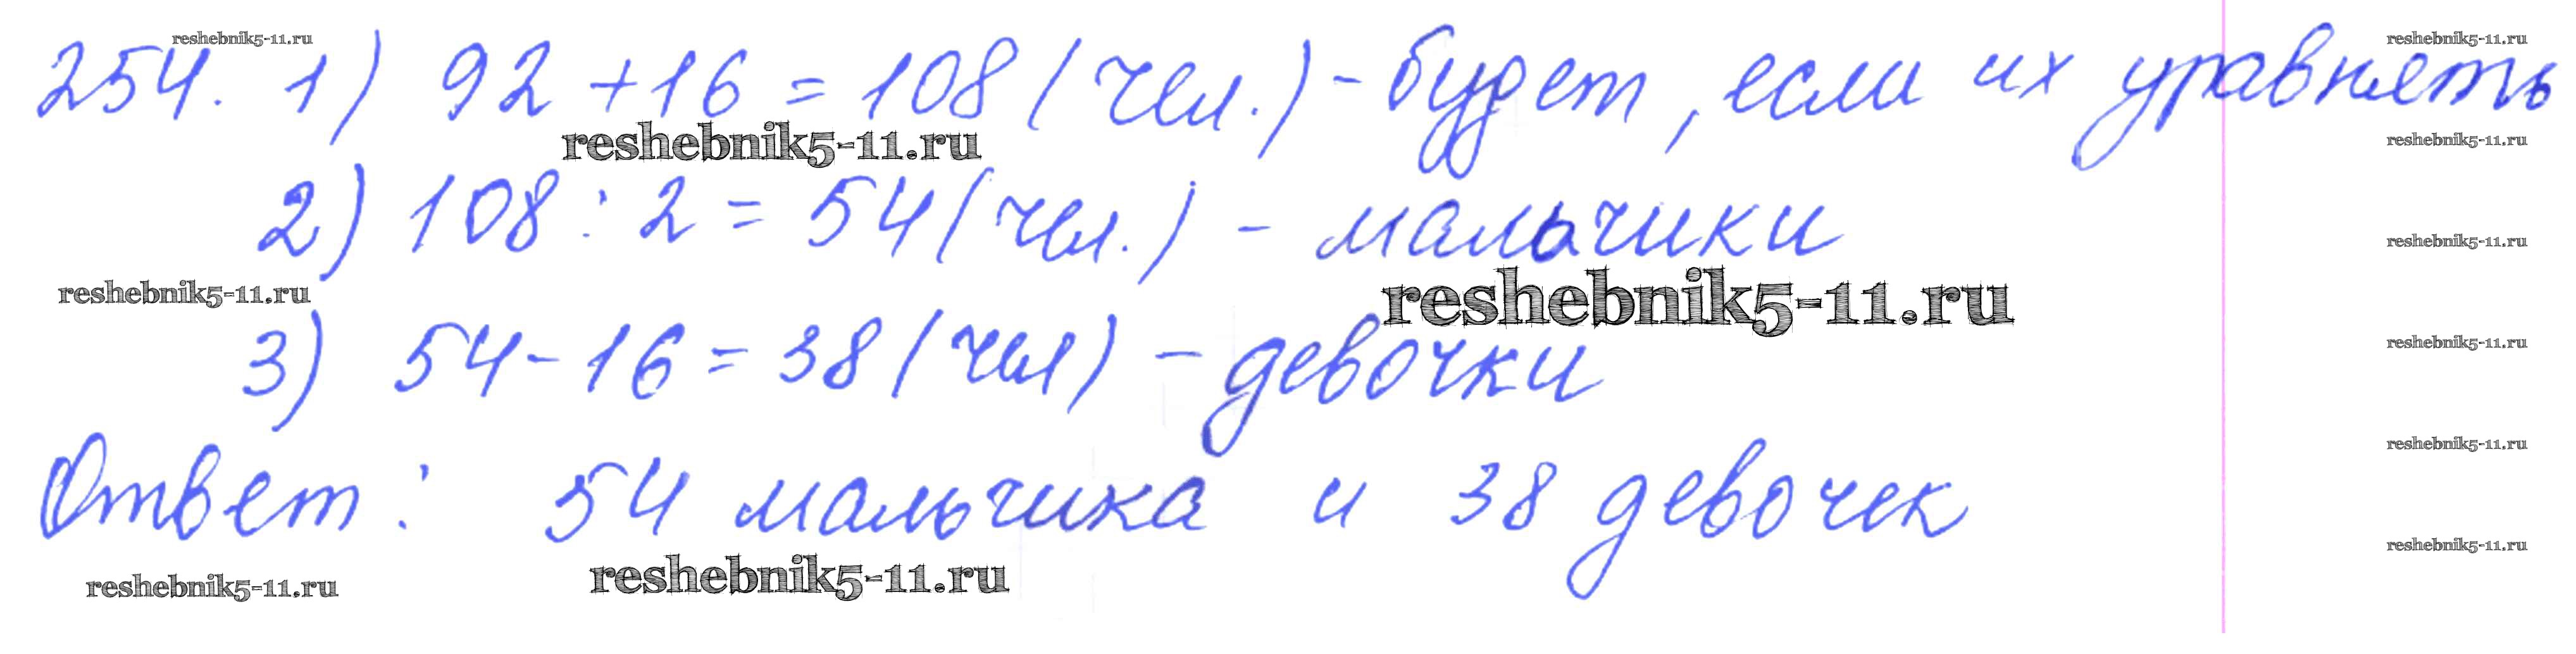 reshebnik5-11.ru
reshebnik5-11.ru
254. 1) 92 + 16 = 108 (чел.) - будет, если их уравнять
reshebnik5-11.ru
reshebnik5-11.ru
2) 108 : 2 = 54 (чел.) - мальчики
reshebnik5-11.ru
reshebnik5-11.ru
reshebnik5-11.ru
3) 54 - 16 = 38 (чел) - девочки
reshebnik5-11.ru
reshebnik5-11.ru
Ответ: 54 мальчика и 38 девочек
reshebnik5-11.ru
reshebnik5-11.ru
reshebnik5-11.ru